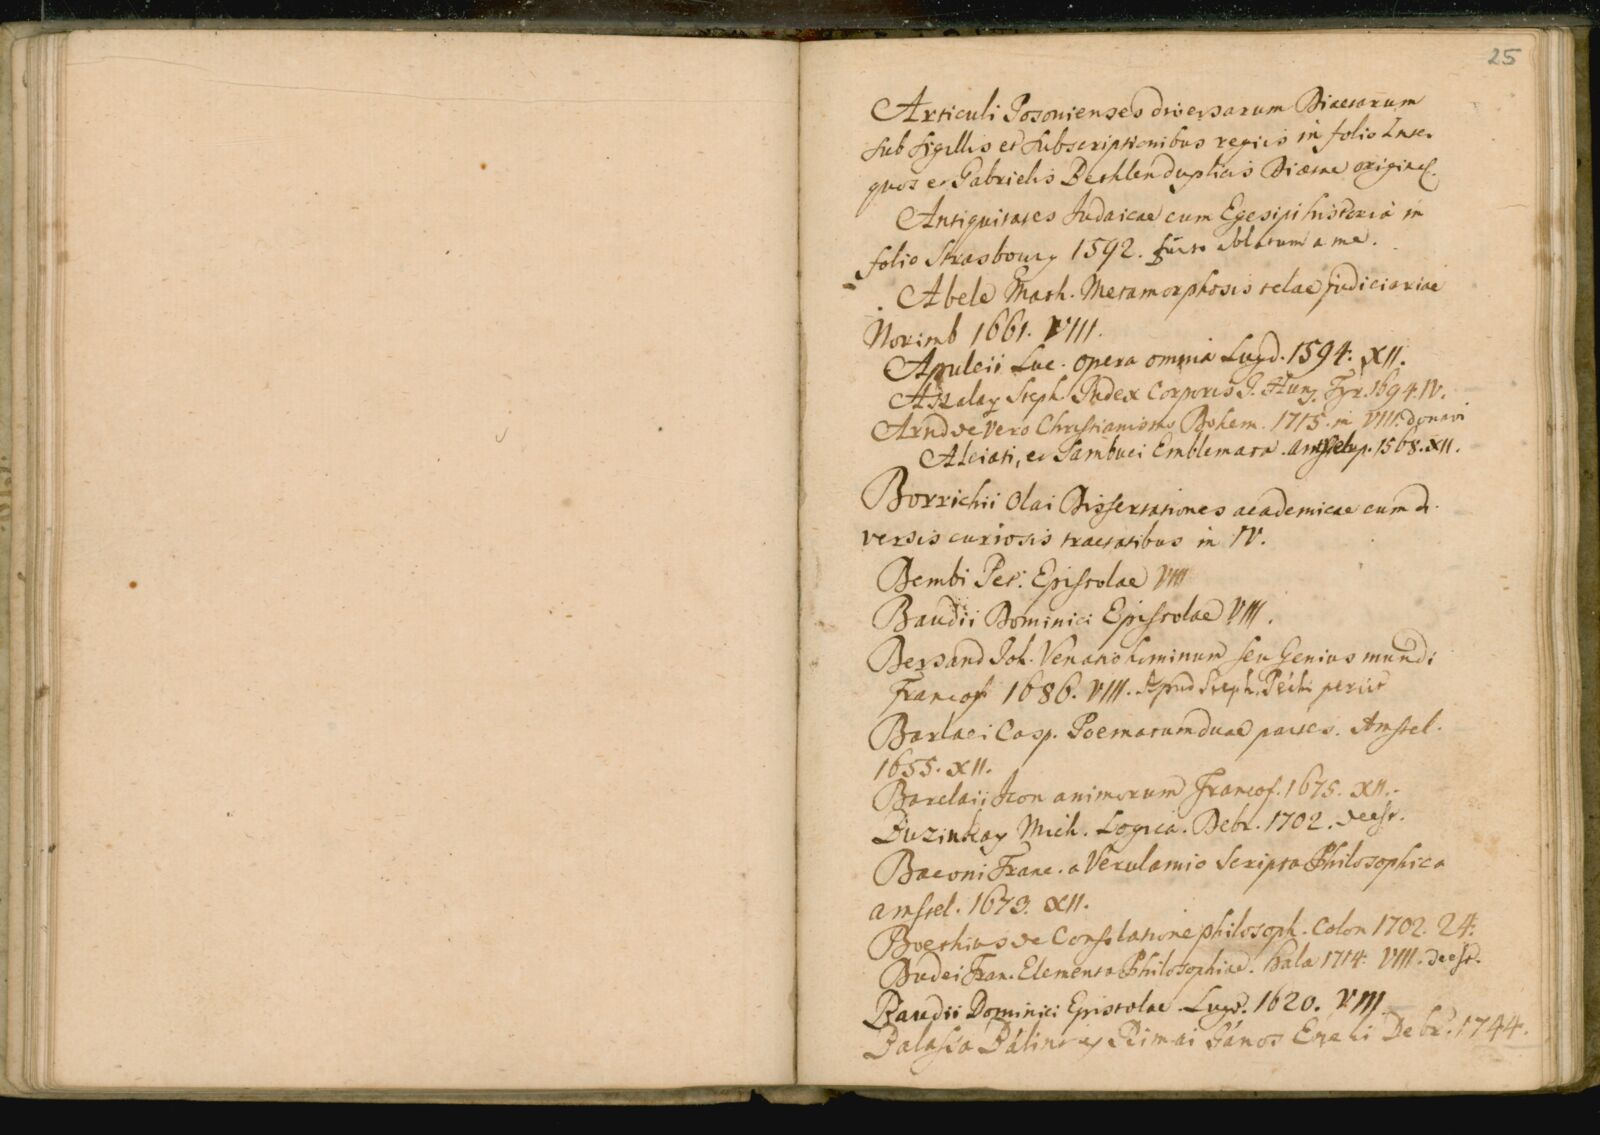 25
Articuli Posonienses diversarum Diaetarum
sub sigillis et subscriptionibus regiis in folio Inter
quos et Gabrielis Bethlen duplicis Diaetae original.
Antiquitates Judaicae cum Egesipi historia in
folio Strasbourg 1592. ablatum a me.
Abele Math. Metamorphosis telae judiciariae
Norimb 1661. VIII.
Apuleii Luc. opera omnia Lugd. 1594. XII.
Aszalay Steph. Index Corporis J. Hung. Tyr. 1694. IV.
Arnd de Vero Christianismo Bohem. 1715. in VIII. donavi
Alciati, et Sambuci Emblemata. 1568. XII.
Borrichii Olai Dissertationes academicae cum di
versis curiosis tractatibus in IV.
Bembi Pet. Epistolae VIII
Baudii Dominici Epistolae VIII.
Bersand Joh. Venatio hominum seu Genius mundi
Francof 1686. VIII. Apud Steph. Pécbi periit
Barlaei Casp. Poematum duae partes. Amstel.
1655. XII.
Barclaii Icon animorum Francof. 1675. XII.
Buzinkay Mich. Logica. Debr. 1702. deest.
Baconi Franc. a Verulamio Scripta Philosophica
amstel. 1673. XII.
Boethius de Consolatione philosoph. Colon 1702. 24.
Budei Fran. Elementa Philosophiae. Hala 1714. VIII. deest.
Baudii Dominici Epistolae Lugd. 1620. VIII
Balassa Bálint és Rimai János Eneki Debr. 1744.